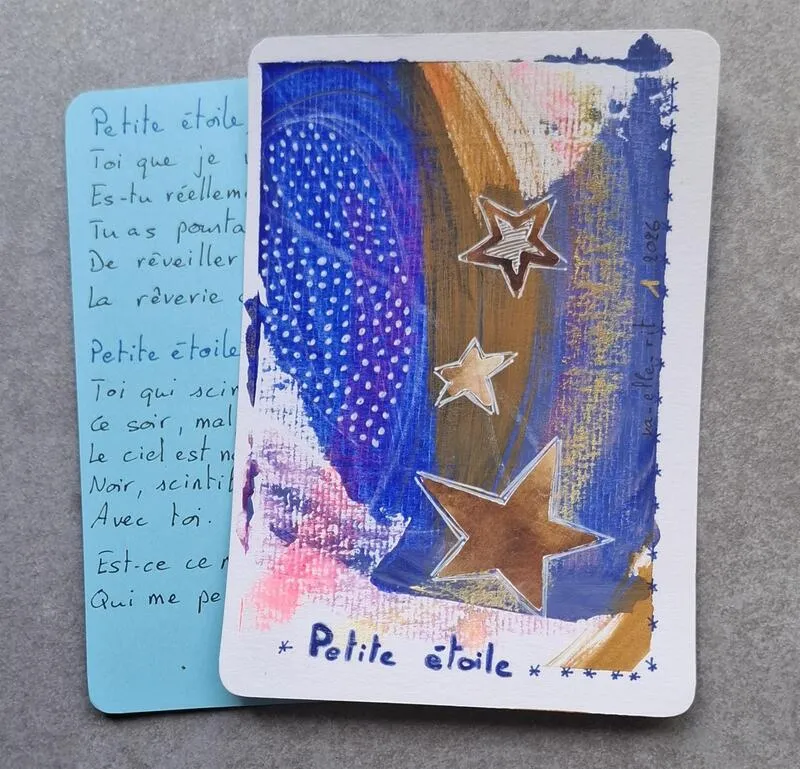 Petite étoile,
Toi que je
Es-tu réellem
Tu as pourta
De réveiller
La rêverie
Petite étoile
Toi qui scin
Ce soir, mal
Le ciel est n
Noir, scintil
Avec toi.
Est-ce ce
Qui me pe
va-elle-rit 1 2026
* Petite étoile * * * * * *